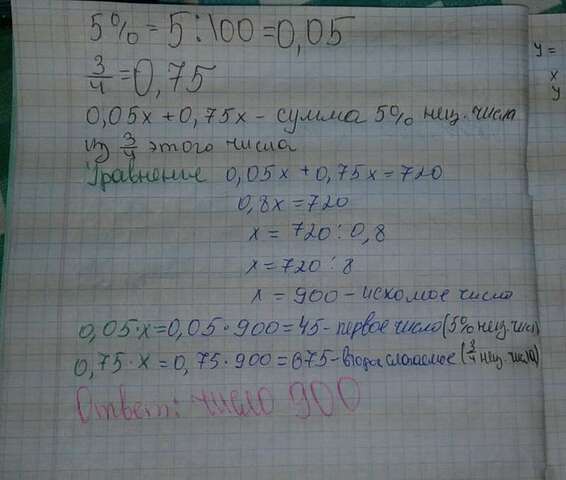 5% = 5:100 = 0,05
3/4 = 0,75
0,05x + 0,75x - сумма 5% неиз. числа
из 3/4 этого числа
Уравнение 0,05x + 0,75x = 720
0,8x = 720
x = 720 : 0,8
x = 720 : 8
x = 900 - искомое число
0,05·x = 0,05·900 = 45 - первое число (5% неиз. числ)
0,75·x = 0,75·900 = 675 - втора слагаемое (3/4 неиз. числа)
Ответ: число 900
y =
x
y